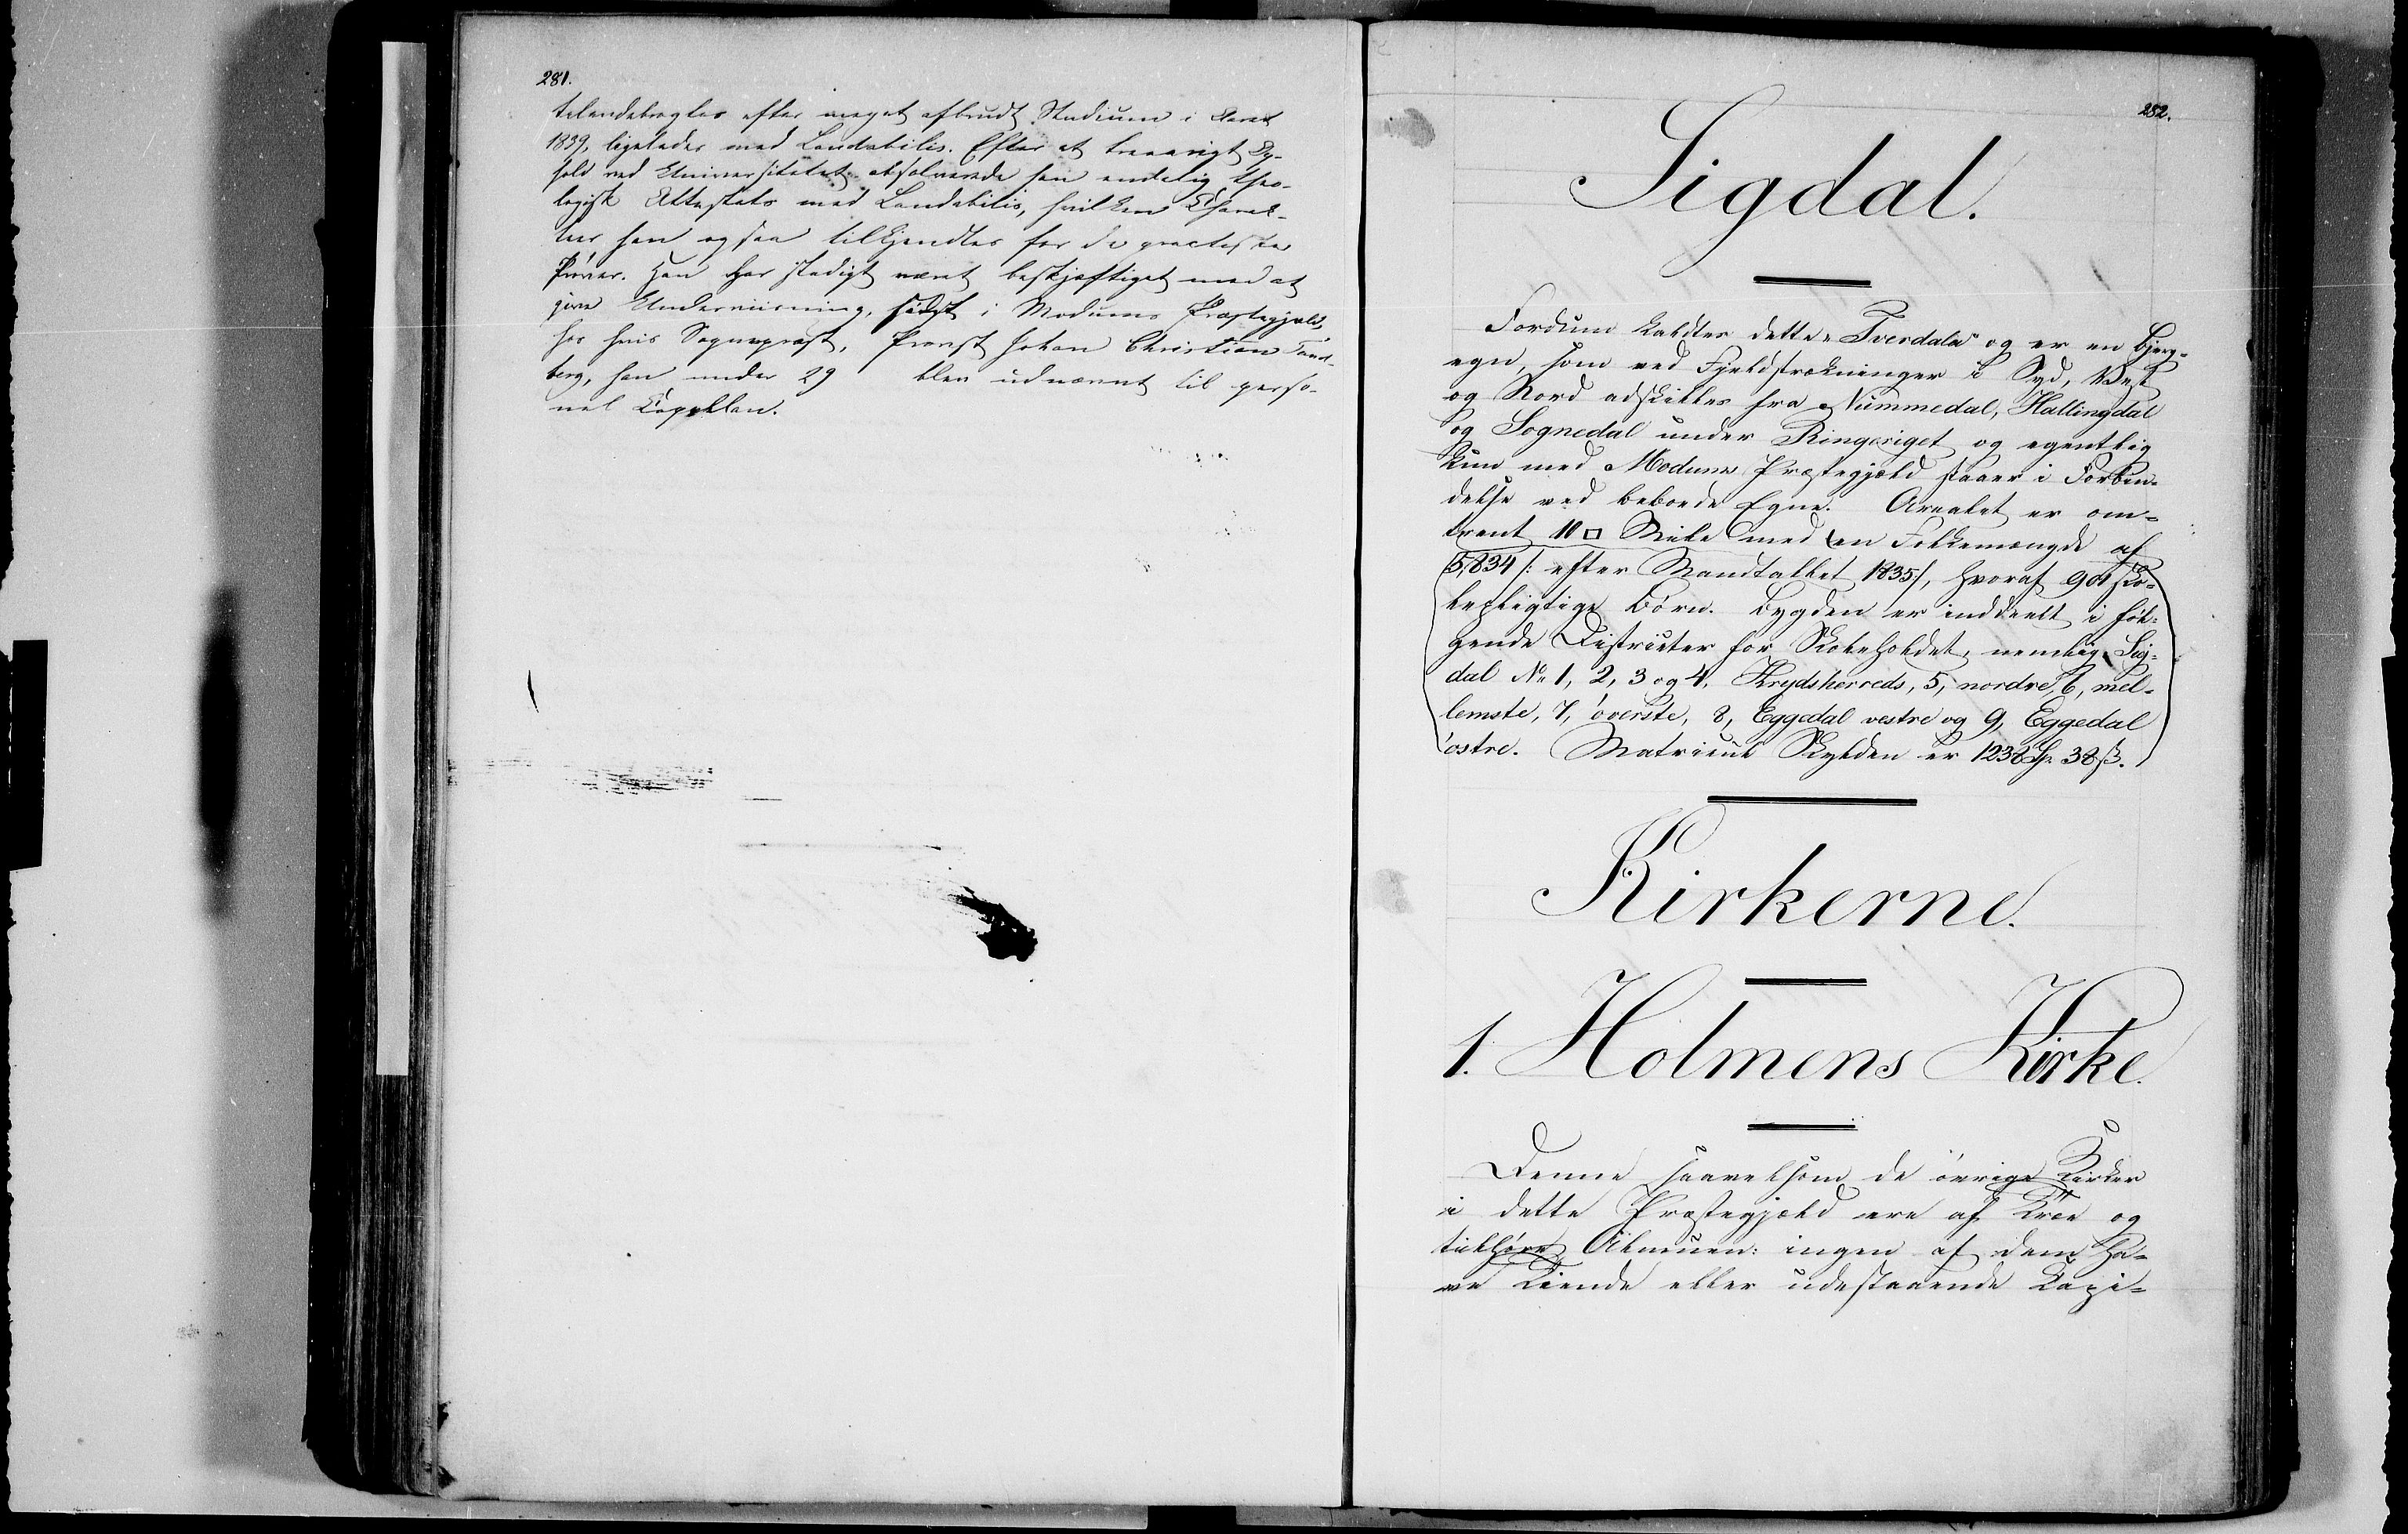 281.
tilendebragtes efter meget afbrudt Studium i Aaret
1839, ligeledes med Laudabilis. Efter et treaarigt Op-
hold ved Universitetet absolverede han endelig theo-
logisk Attestats med Laudabilis, hvilken Charak-
teer han ogsaa tilkjendtes for de practiske
Prøver. Han har stadigt været beskjæftiget med at
give Underviisning, sidst i Modums Præstegjæld,
hos hvis Sognepræst, Provst Johan Christian Tand-
berg, han under 29 blev udnævnt til perso-
nel Capellan.
282.
Sigdal.
Fordum kaldtes dette "Tverdala" og er en Bjerg-
egn, som ved Fjeldstrækninger i Syd, Vest
og Nord adskilles fra Nummedal, Hallingdal
og Sognedal under Ringeriget og egentlig
kun med Modums Præstegjæld staaer i Forbin-
delse ved beboede Egne. Arealet er om-
trent 10 □ Mile med en Folkemængde af
5,834 /: efter Mandtallet 1835 :/, hvoraf 901 sko-
lepligtige Børn. Bygden er inddeelt i føl-
gende Districter for Skoleholdet, nemlig Sig-
dal No 1, 2, 3 og 4, Krydsherreds, 5, nordre, 6, mel-
lemste, 7, øverste, 8, Eggedal vestre og 9, Eggedal
østre. Matricul Skylden er 1238 Sp. 38 ß.
Kirkerne.
1. Holmens Kirke.
Denne saavelsom de øvrige Kirker
i dette Præstegjæld ere af Træe og
tilhøre Almuen: ingen af dem ha-
ve Tiende eller udestaaende Capi-